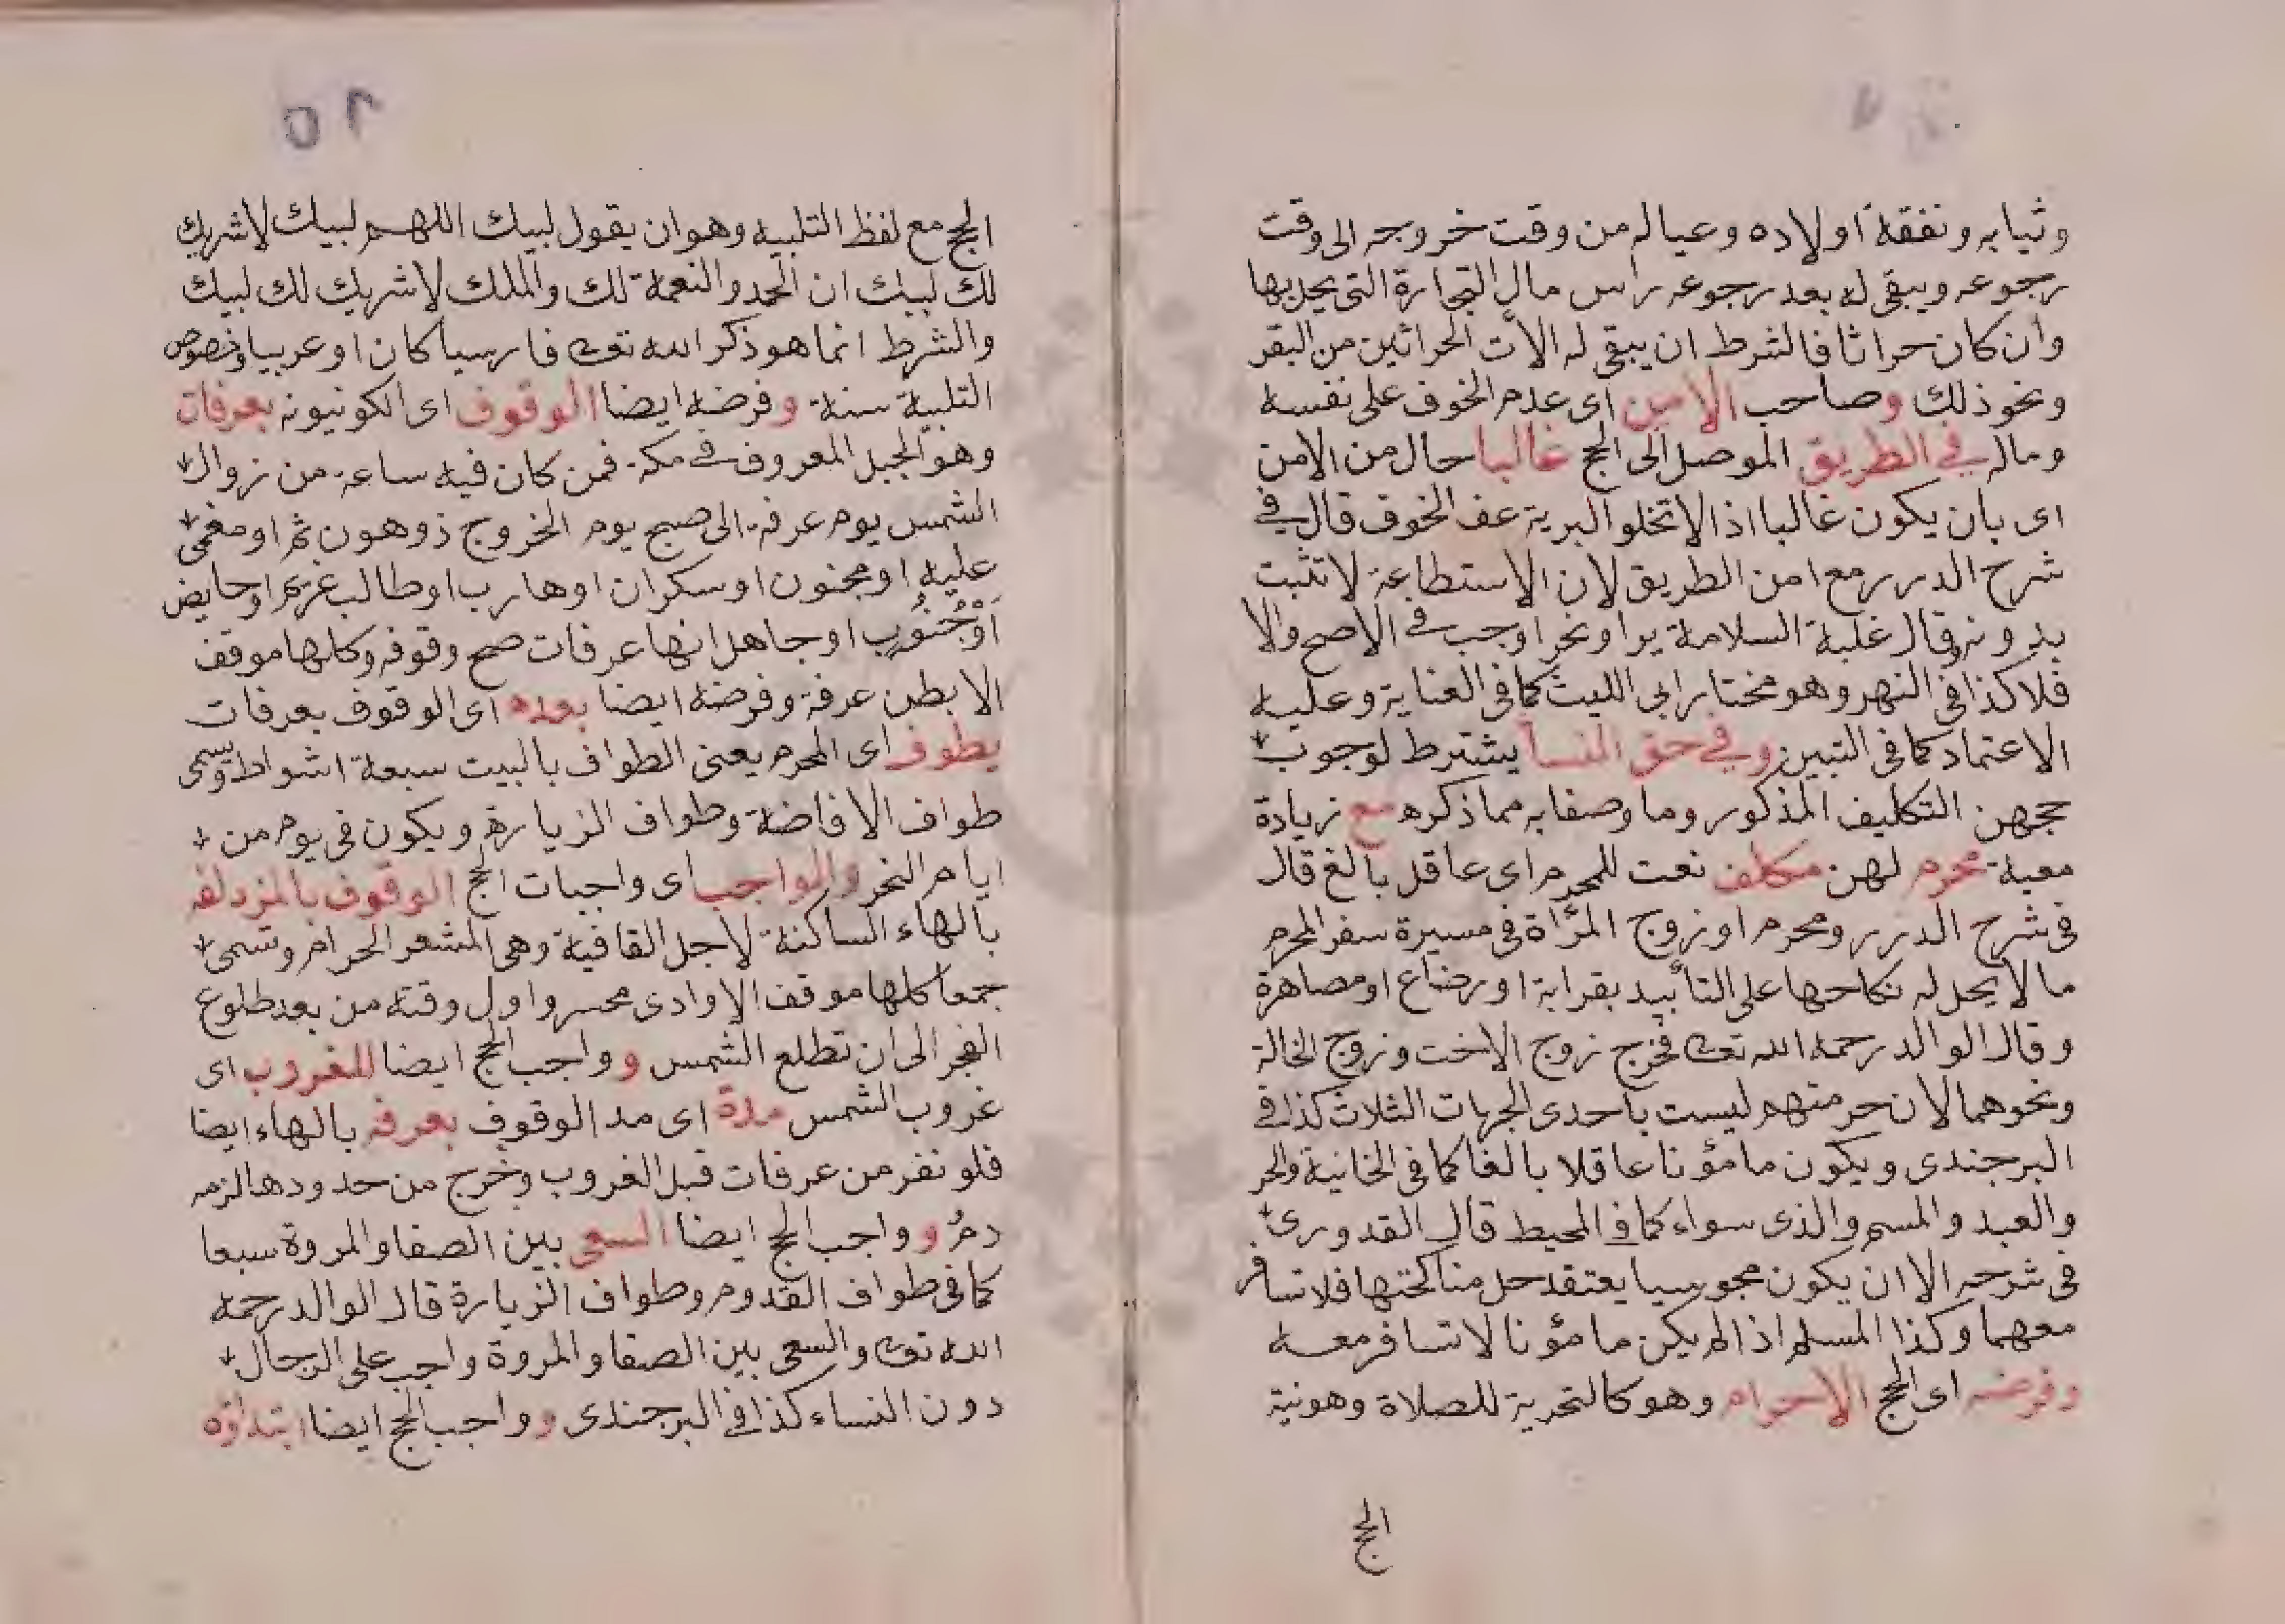 وثيابه ونفقة اولاده وعياله من وقت خروجه الى وقت
رجوعه ويبقى له بعد رجوعه راس مال التجارة التى يحل بها
وان كان حراثا فالشرط ان يبقى له الات الحراثين من البقر
ونحو ذلك وصاحب الامن اى عدم الخوف على نفسه
وماله في الطريق الموصل الى الحج غالبا حال من الامن
اى بان يكون غالبا اذ لا تخلو البرية عن الخوف قال في
شرح الدرر مع امن الطريق لان الاستطاعة لا تثبت
بدونه وقال غلبة السلامة برا وبحرا وجب في الاصح والا
فلا كذا في النهر وهو مختار ابي الليث كما في العناية وعليه
الاعتماد كما في التبيين وفي حق النسا يشترط لوجوب
حجهن التكليف المذكور وما وصفا به مما ذكره مع زيادة
معية محرم لهن مكلف نعت للمحرم اى عاقل بالغ قال
فى شرح الدرر ومحرم او زوج المرأة في مسيرة سفر المحرم
ما لا يحل له نكاحها على التأبيد بقرابة او رضاع او مصاهرة
وقال الوالد رحمه الله تعالى فخرج زوج الاخت وزوج الخالة
ونحوهما لان حرمتهم ليست باحدى الجهات الثلاث كذا في
البرجندى ويكون مامؤنا عاقلا بالغا كما في الخانية والحر
والعبد والمسم والذى سواء كما في المحيط قال القدورى
فى شرحه الا ان يكون مجوسيا يعتقد حل مناكحتها فلا تسافر
معهما وكذا المسلم اذا لم يكن مامؤنا لا تسافر معه
وفرضه اى الحج الاحرام وهو كالتحرية للصلاة وهو نية
الحج
10
الحج مع لفظ التلبيه وهو ان يقول لبيك اللهم لبيك لا شريك
لك لبيك ان الحمد والنعمة لك والملك لا شريك لك لبيك
والشرط انما هو ذكر الله تعالى فارسيا كان او عربيا وخصوص
التلبية سنة وفرضه ايضا الوقوف اى الكونيونه بعرفات
وهو الجبل المعروف في مكة فمن كان فيه ساعة من زوال
الشمس يوم عرفة الى صبح يوم الخروج ذو هون ثم او مغمى
عليه او مجنون او سكران او هارب او طالب غريم او حايض
اوْ جُنُوب او جاهل انها عرفات صح وقوفه وكلها موقف
الا بطن عرفة وفرضه ايضا بعده اى الوقوف بعرفات
يطوف اى المحرم يعنى الطواف بالبيت سبعة اشواط وتسمى
طواف الافاضة وطواف الزيارة ويكون فى يوم من
ايام النحر والواجب اى واجبات الحج الوقوف بالمزدلفه
بالهاء الساكنة لاجل القافية وهى المشعر الحرام وتسمى
جمعا كلها موقف الا وادى محسر واول وقته من بعد طلوع
الفجر الى ان تطلع الشمس و وواجب الحج ايضا للغروب اى
غروب الشمس مدة اى مد الوقوف بعرفه بالهاء ايضا
فلو نفر من عرفات قبل الغروب وخرج من حدودها لزمه
دم و وواجب الحج ايضا السعى بين الصفا والمروة سبعا
كما فى طواف القدوم وطواف الزيارة قال الوالد رحمه
الله تعالى والسعى بين الصفا والمروة واجب على الرجال
دون النساء كذا في البرجندى و وواجب الحج ايضا ابتداؤه